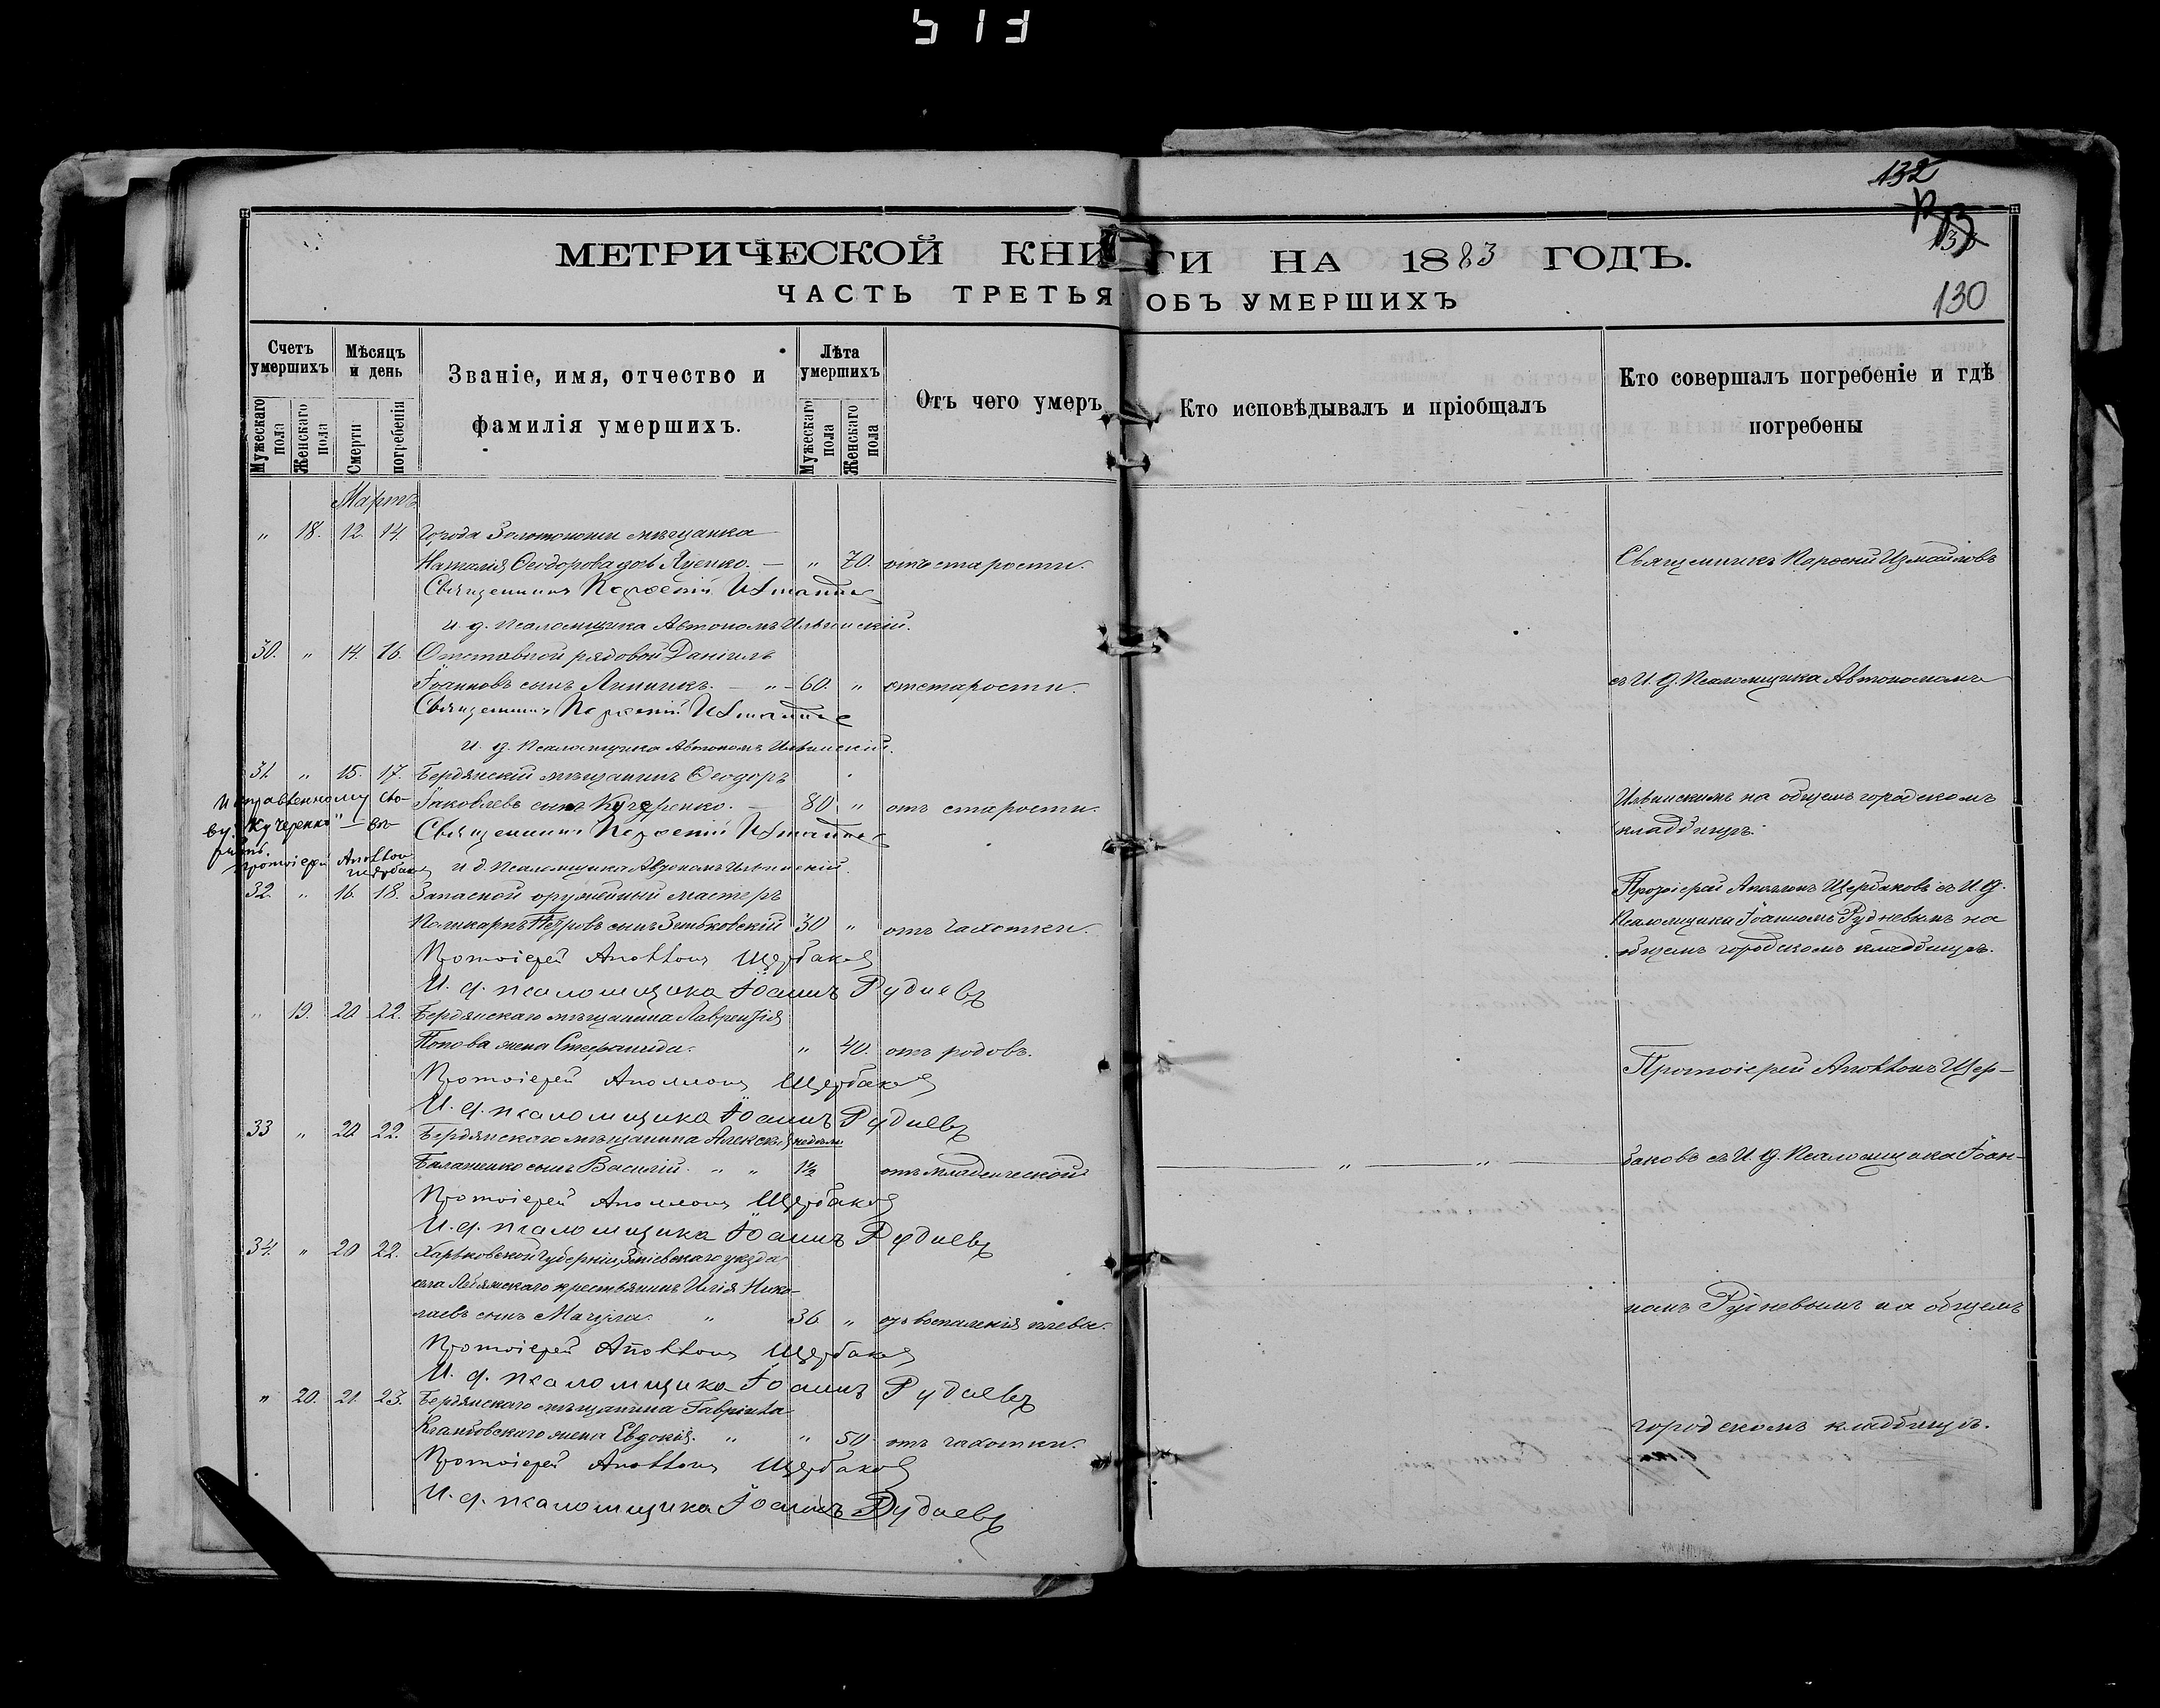 513
132
130
МЕТРИЧЕСКОЙ КНИГИ НА 1883 ГОДЪ.
ЧАСТЬ ТРЕТЬЯ ОБЪ УМЕРШИХЪ
Счетъ умершихъ
Мѣсяцъ и день
Званіе, имя, отчество и фамилія умершихъ.
Лѣта умершихъ
Отъ чего умеръ
Кто исповѣдывалъ и пріобщалъ
Кто совершалъ погребеніе и гдѣ погребены
Мужескаго пола
Женскаго пола
Смерти
погребенія
Мужескаго пола
Женскаго пола
Мартъ
" 18. 12. 14. Города Золотоноши мѣщанка
Наталія Ѳеодорова " 70. отъ старости.
Священникъ Измаиловъ
Священникъ
И. д. псаломщика Автономъ Ильинскій.
30. " 14. 16. Отставной рядовой Даніилъ
Іоанновъ сынъ Линникъ. — " — 60. " отъ старости.
съ И. д. Псаломщика Автономомъ
Священникъ
И. д. Псаломщика Автономъ Ильинскій.
31. " 15. 17. Бердянскій мѣщанинъ Ѳеодоръ
Исправленному сло-
Іаковлевъ сынъ Кучеренко. — 80 " отъ старости.
Ильинскимъ на общемъ городскомъ
ву "Кучеренко" — вѣ-
Священникъ
кладбищѣ.
рить.
Протоіерей Аполлон Щербаков
И. д. Псаломщика Автономъ Ильинскій.
32. " 16. 18. Запасной оружейный мастеръ
Протоіерей Аполлонъ Щербаковъ съ И. д.
Поликарпъ Петровъ сынъ Зимбковскій 30 " отъ чахотки.
Псаломщика Іоанномъ Рудневымъ на
общемъ городскомъ кладбищѣ.
Протоіерей Аполлонъ Щербаковъ
И. д. псаломщика Іоаннъ Рудневъ
" 19. 20. 22. Бердянскаго мѣщанина Лаврентія
Попова жена Стефанида. " 40. отъ родовъ.
Протоіерей Аполлонъ Щер-
Протоіерей Аполлонъ Щербаковъ
И. д. псаломщика Іоаннъ Рудневъ
33 " 20 22. Бердянскаго мѣщанина Алексѣя недѣли
Балаценко сынъ Василій. " " 1½ отъ младенческой
— " — " — баковъ съ И. д. Псаломщика Іоан-
Протоіерей Аполлонъ Щербаковъ
И. д. псаломщика Іоаннъ Рудневъ
34. " 20 22. Харьковской губерніи, Зміевскаго уѣзда
села крестьянинъ Илія Нико-
лаевъ сынъ Мачула. " 36 " отъ воспаленія плевы.
номъ Рудневымъ на общемъ
Протоіерей Аполлонъ Щербаковъ
И. д. псаломщика Іоаннъ Рудневъ
" 20. 21. 23. Бердянскаго мѣщанина Гавріила
жена Евдокія. " " 50 отъ чахотки.
городскомъ кладбищѣ.
Протоіерей Аполлонъ Щербаковъ
И. д. псаломщика Іоаннъ Рудневъ